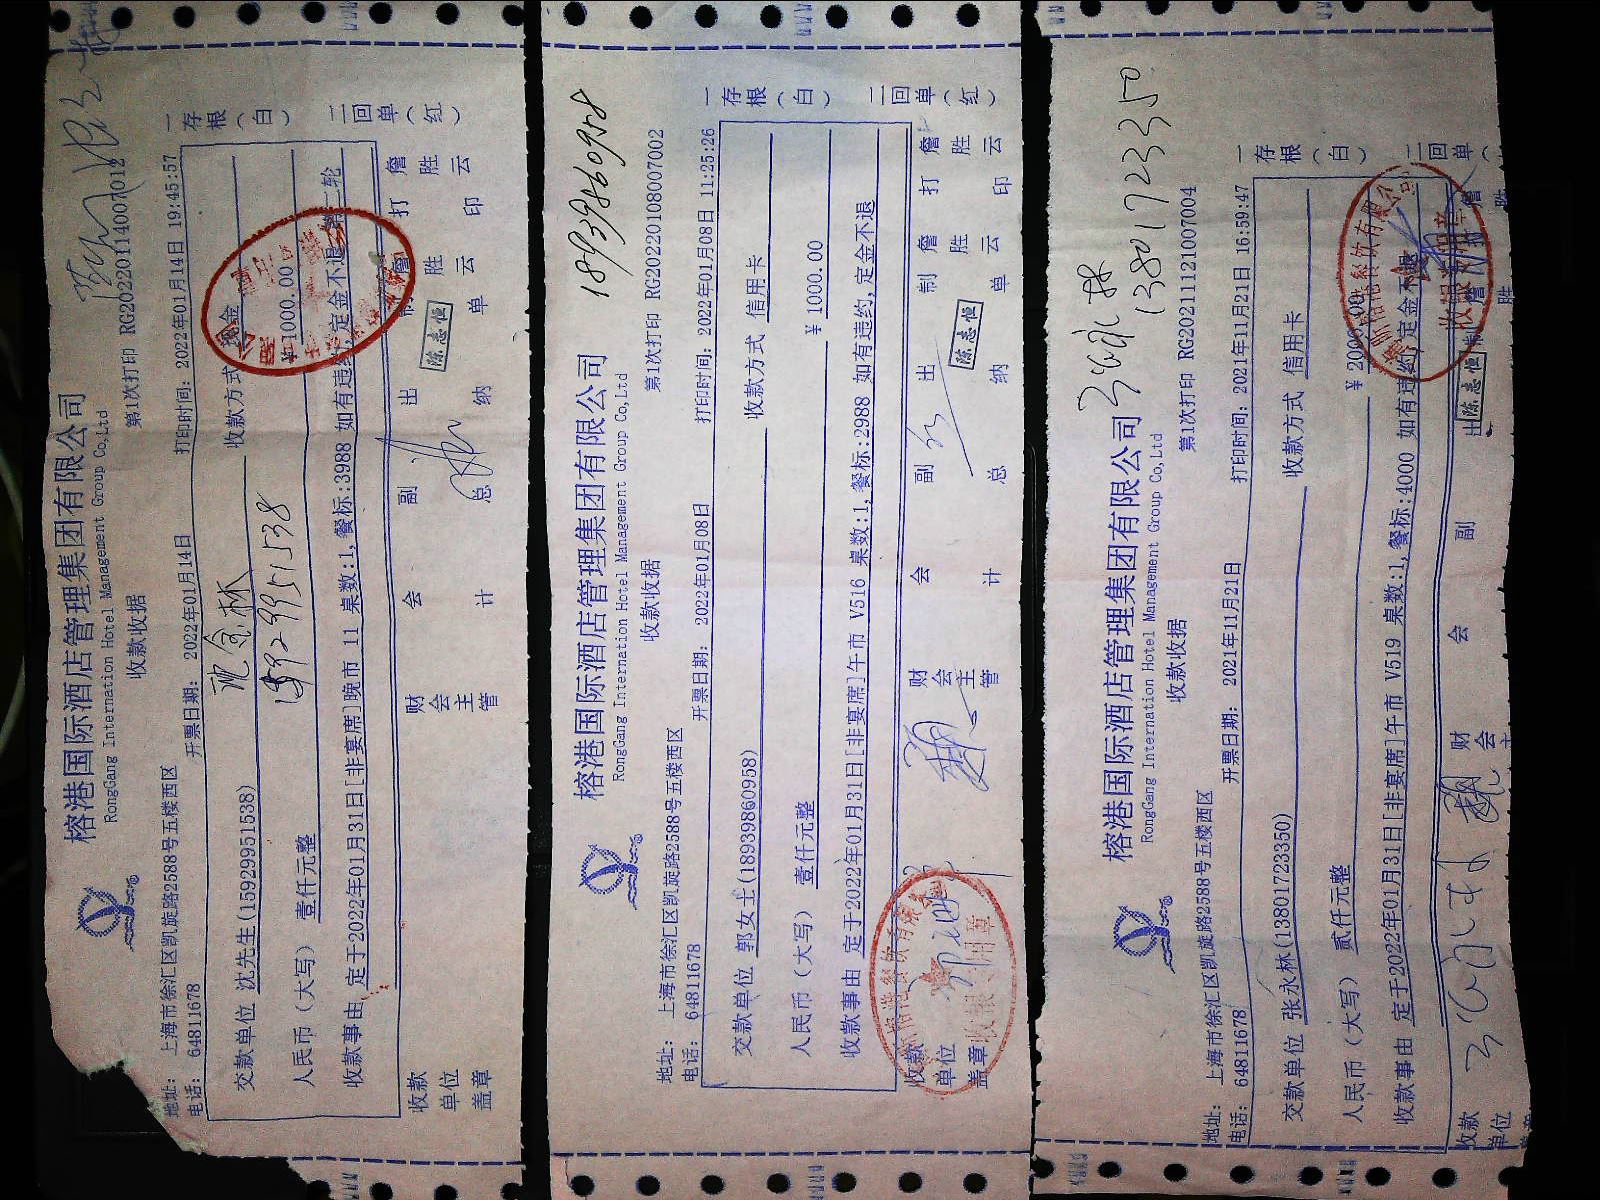 榕港国际酒店管理集团有限公司
RongGang International Hotel Management Group Co,Ltd
收款收据
第1次打印 RG20220114007012
地址: 上海市徐汇区凯旋路2588号五楼西区
电话: 64811678
开票日期: 2022年01月14日
打印时间: 2022年01月14日 19:45:57
交款单位 沈先生(15929951538)
收款方式 现金
15929951538
人民币（大写） 壹仟元整
¥1000.00
收款事由 定于2022年01月31日[非宴席]晚市 11 桌数:1,餐标:3988 如有违约,定金不退 第二轮
收款单位盖章
财会主管
会计
副总
出纳
陈志恒
制单
詹胜云
打印
詹胜云
一存根（白）
二回单（红）
榕港国际酒店管理集团有限公司
RongGang International Hotel Management Group Co,Ltd
收款收据
18939860958
第1次打印 RG20220108007002
地址: 上海市徐汇区凯旋路2588号五楼西区
电话: 64811678
开票日期: 2022年01月08日
打印时间: 2022年01月08日 11:25:26
交款单位 郭女士(18939860958)
收款方式 信用卡
人民币（大写） 壹仟元整
¥ 1000.00
收款事由 定于2022年01月31日[非宴席]午市 V516 桌数:1,餐标:2988 如有违约,定金不退
收款单位盖章
财会主管
会计
副总
出纳
陈志恒
制单
詹胜云
打印
詹胜云
一存根（白）
二回单（红）
榕港国际酒店管理集团有限公司
RongGang International Hotel Management Group Co,Ltd
收款收据
13801723350
第1次打印 RG20211121007004
地址: 上海市徐汇区凯旋路2588号五楼西区
电话: 64811678
开票日期: 2021年11月21日
打印时间: 2021年11月21日 16:59:47
交款单位 张永林(13801723350)
收款方式 信用卡
人民币（大写） 贰仟元整
¥ 2000.00
收款事由 定于2022年01月31日[非宴席]午市 V519 桌数:1,餐标:4000 如有违约,定金不退
收款单位
财会
会
副
出
陈志恒
詹胜
詹胜
一存根（白）
二回单